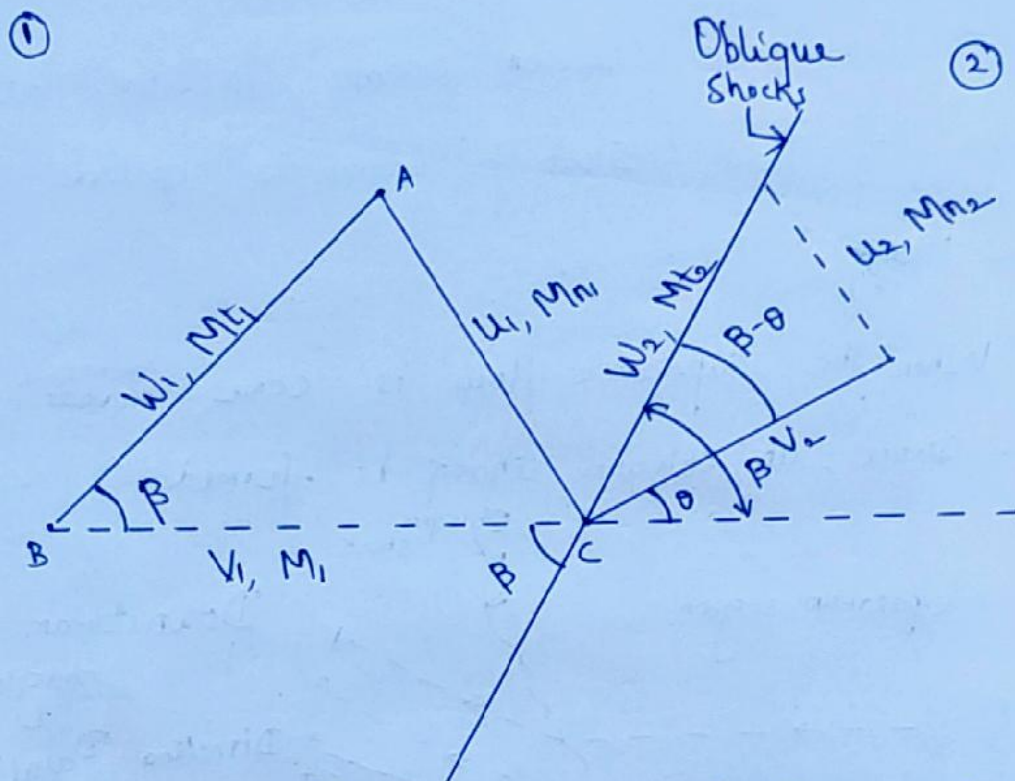 ①
Oblique
shocks
②
A
W₁, Mt₁
u₁, Mn₁
W₂, Mt₂
u₂, Mn₂
β-θ
V₂
β
θ
β
B
V₁, M₁
β
C